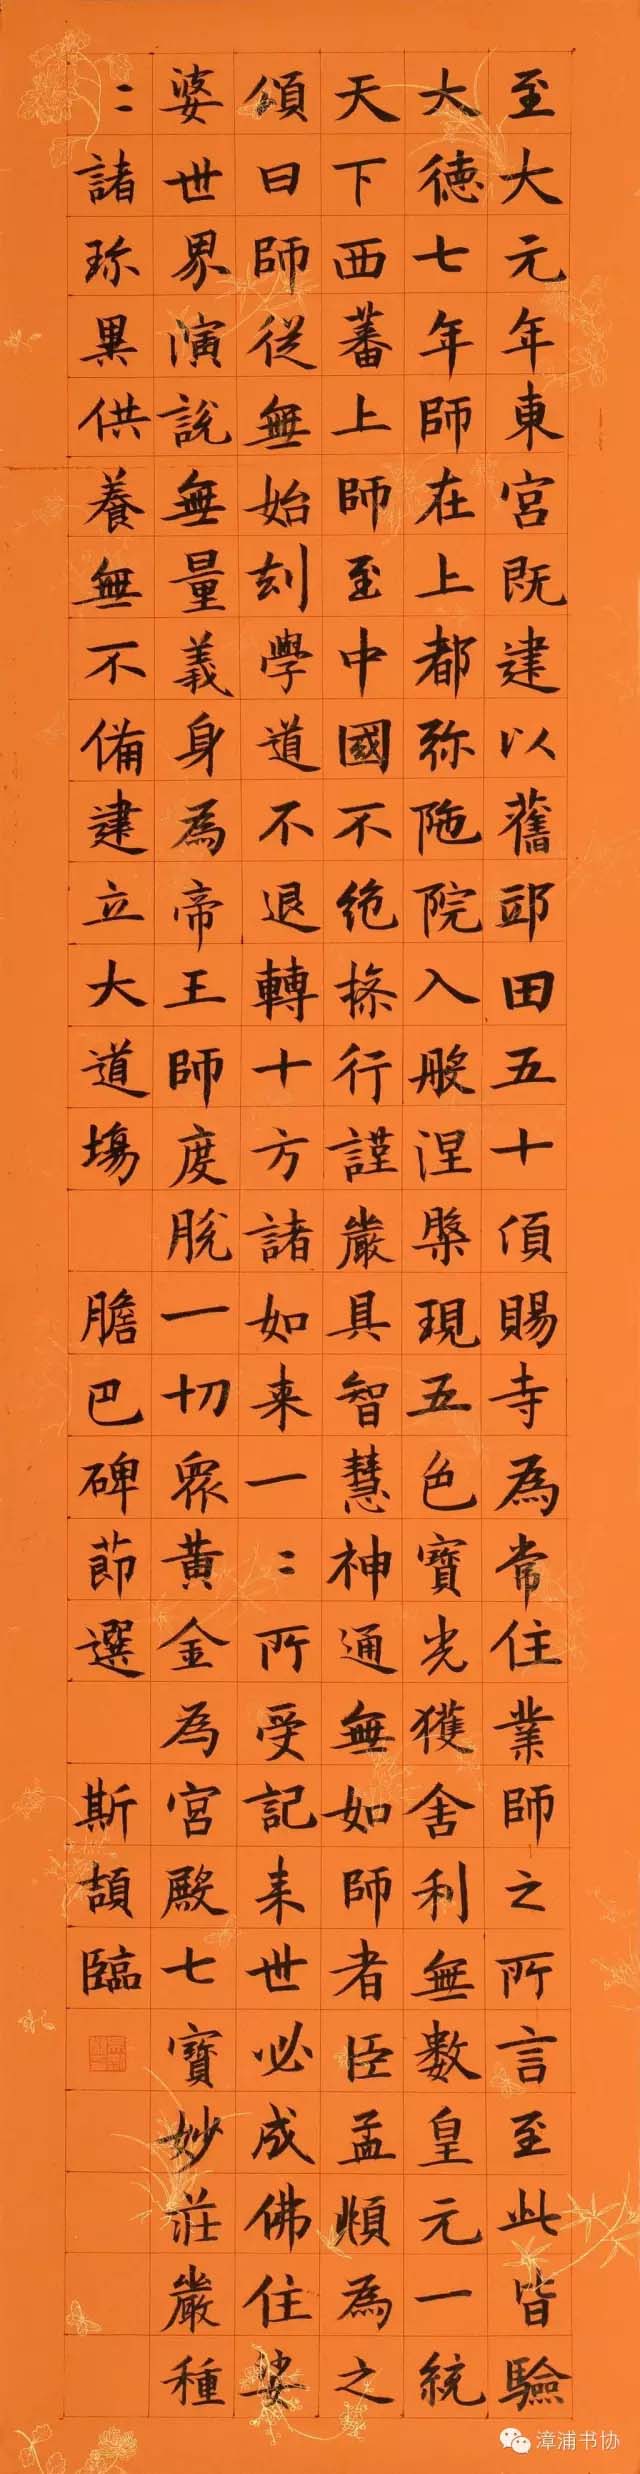 至大元年東宮既建以舊邸田五十頃賜寺為常住業師之所言至此皆驗
大德七年師在上都弥陁院入般涅槃現五色寶光獲舍利無數皇元一統
天下西蕃上師至中國不絶操行謹嚴具智慧神通無如師者臣孟頫為之
頌曰師從無始劫學道不退轉十方諸如来一〻所受記来世必成佛住娑
婆世界演說無量義身為帝王師度脫一切眾黃金為宮殿七寶妙莊嚴種
〻諸珎異供養無不備建立大道場 膽巴碑節選 斯頡臨
漳浦书协